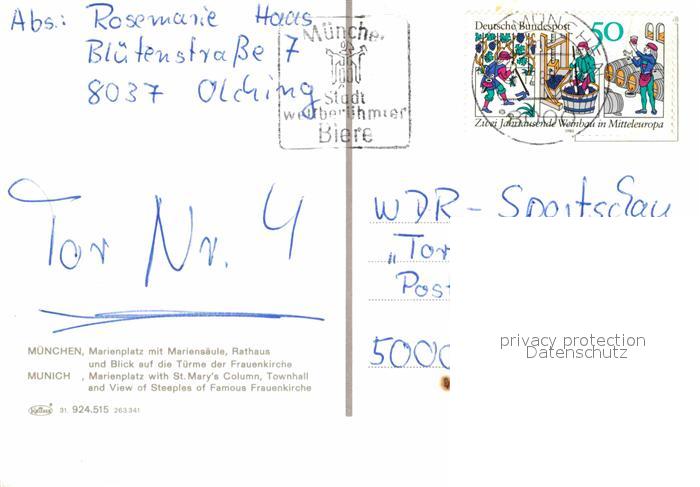 Abs.: Rosemarie Haas
Blütenstraße 7
8037 Olching
München
Stadt
weltberühmter
Biere
Deutsche Bundespost
50
Zwei Jahrtausende Weinbau in Mitteleuropa
1980
Tor Nr. 4
WDR - Sportschau
„Tor
Post
5000
privacy protection
Datenschutz
MÜNCHEN, Marienplatz mit Mariensäule, Rathaus
und Blick auf die Türme der Frauenkirche
MUNICH , Marienplatz with St. Mary's Column, Townhall
and View of Steeples of Famous Frauenkirche
31. 924.515 263341